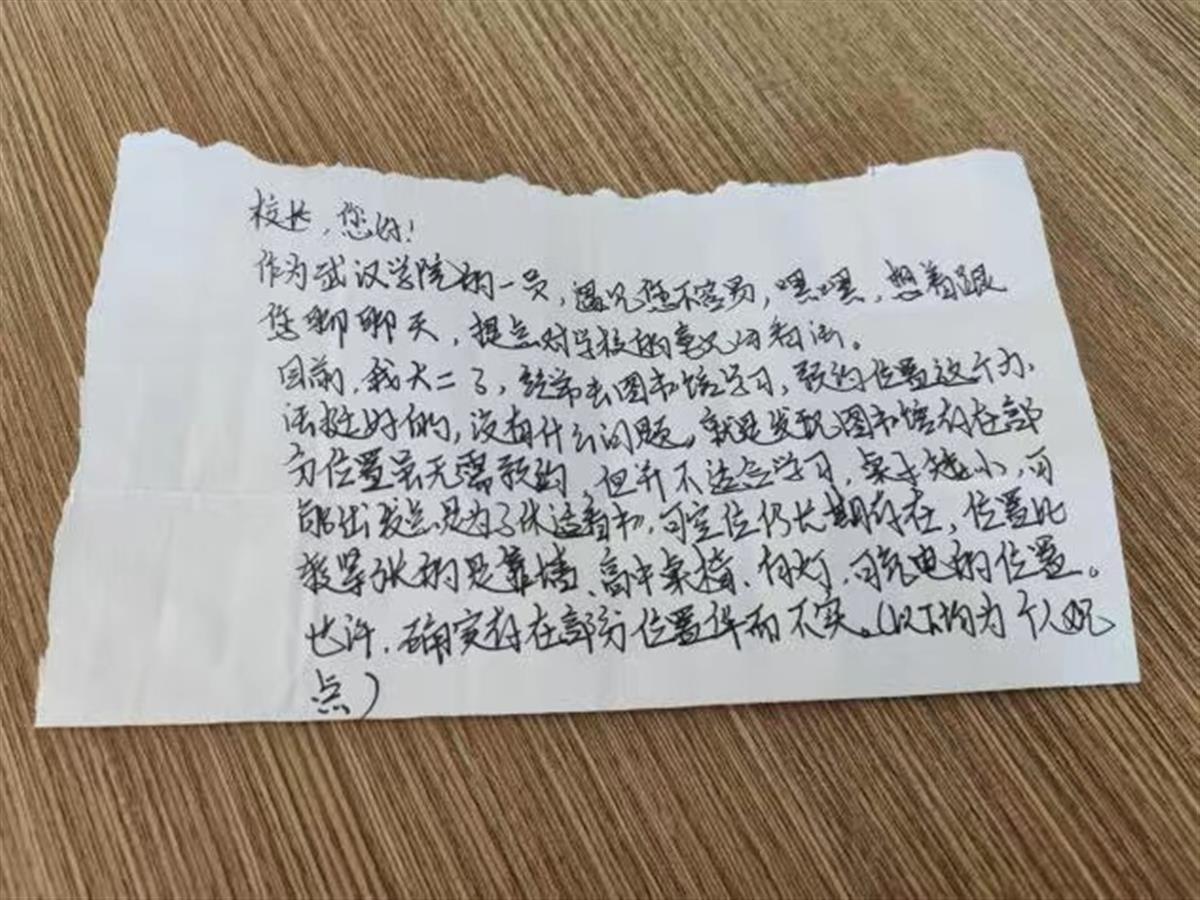 校长，您好！
作为武汉学院的一员，遇见您不容易，嘿嘿，想着跟
您聊聊天，提点对学校的意见与看法。
目前，我大二了，经常去图书馆学习，预约位置这个办
法挺好的，没有什么问题，就是发现图书馆存在部
分位置虽无需预约，但并不适合学习，桌子矮小，可
能出发点是为了休适看书，可空位仍长期存在，位置比
较紧张的是靠墙、高中桌椅、有灯、可充电的位置。
也许，确实存在部分位置华而不实。（以下均为个人观
点）